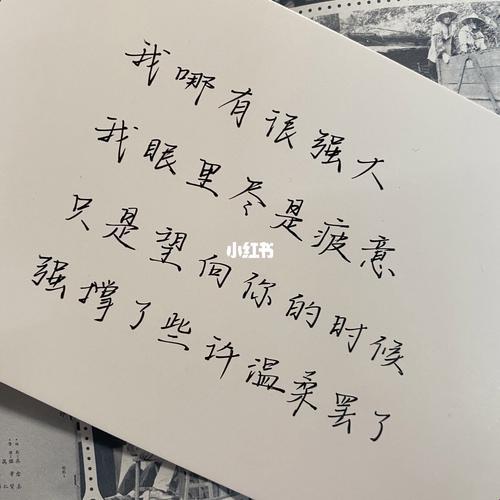 我哪有很强大
我眼里尽是疲意
只是望向你的时候
强撑了些许温柔罢了
小红书